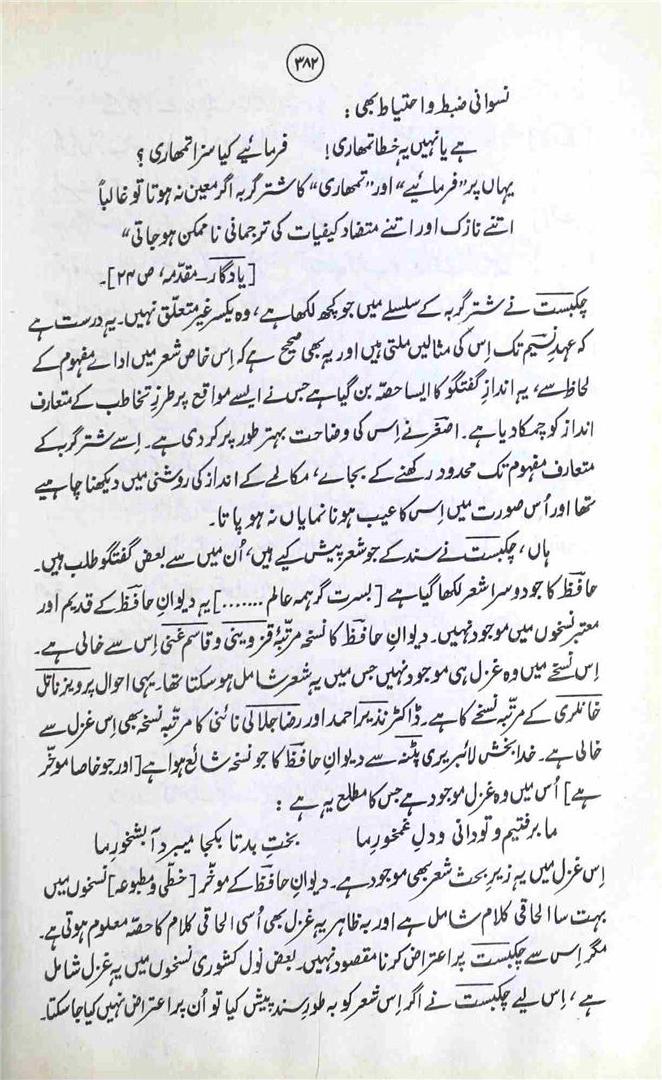 ۳۸۲
نسوانی ضبط و احتیاط بھی :
ہے یا نہیں یہ خطا تمھاری! فرمائیے کیا سزا تمھاری ؟
یہاں پر ”فرمائیے“ اور ”تمھاری“ کا شترگربہ اگر معین نہ ہوتا تو غالباً
اتنے نازک اور اتنے متضاد کیفیات کی ترجمانی ناممکن ہوجاتی“
[یادگار۔مقدّمہ، ص ۲۴]۔
چکبست نے شترگربہ کے سلسلے میں جو کچھ لکھا ہے، وہ یکسر غیر متعلّق نہیں۔ یہ درست ہے
کہ عہدِ نسیم تک اِس کی مثالیں ملتی ہیں اور یہ بھی صحیح ہے کہ اِس خاص شعر میں اداے مفہوم کے
لحاظ سے، یہ اندازِ گفتگو کا ایسا حصّہ بن گیا ہے جس نے ایسے مواقع پر طرزِ تخاطب کے متعارف
انداز کو چمکا دیا ہے۔ اصغر نے اِس کی وضاحت بہتر طور پر کردی ہے۔ اِسے شترگربہ کے
متعارف مفہوم تک محدود رکھنے کے بجاے، مکالمے کے انداز کی روشنی میں دیکھنا چاہیے
تھا اور اُس صورت میں اِس کا عیب ہونا نمایاں نہ ہو پاتا۔
ہاں، چکبست نے سند کے جو شعر پیش کیے ہیں، اُن میں سے بعض گفتگو طلب ہیں۔
حافظ کا جو دوسرا شعر لکھا گیا ہے [بسرت گر ہمہ عالم .......] یہ دیوانِ حافظ کے قدیم اور
معتبر نسخوں میں موجود نہیں۔ دیوانِ حافظ کا نسخہ مرتّبۂ قزوینی و قاسم غنی اِس سے خالی ہے۔
اِس نسخے میں وہ غزل ہی موجود نہیں جس میں یہ شعر شامل ہوسکتا تھا۔ یہی احوال پرویز ناتل
خانلری کے مرتّبہ نسخے کا ہے۔ ڈاکٹر نذیر احمد اور رضا جلالی نائنی کا مرتّبہ نسخہ بھی اِس غزل سے
خالی ہے۔ خدا بخش لائبریری پٹنہ سے دیوانِ حافظ کا جو نسخہ شائع ہوا ہے [اور جو خاصا موخّر
ہے] اُس میں وہ غزل موجود ہے جس کا مطلع یہ ہے :
ما برفتیم و تو دانی و دلِ غمخورِ ما بختِ بد تا بکجا میبرد آبشخورِ ما
اِس غزل میں یہ زیرِ بحث شعر بھی موجود ہے۔ دیوانِ حافظ کے موخّر [خطّی و مطبوعہ] نسخوں میں
بہت سا الحاقی کلام شامل ہے اور بہ ظاہر یہ غزل بھی اُسی الحاقی کلام کا حصّہ معلوم ہوتی ہے۔
مگر اِس سے چکبست پر اعتراض کرنا مقصود نہیں۔ بعض نول کشوری نسخوں میں یہ غزل شامل
ہے، اِس لیے چکبست نے اگر اِس شعر کو بہ طورِ سند پیش کیا تو اُن پر اعتراض نہیں کیا جاسکتا۔